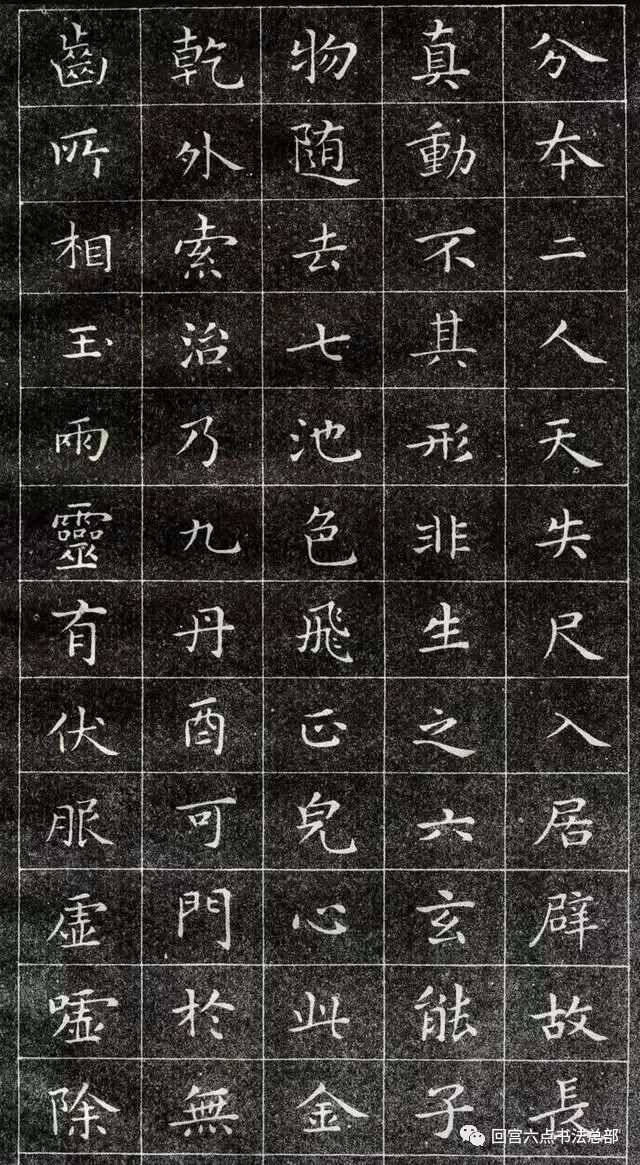 分本二人天失尺入居辟故長
真動不其形非生之六玄能子
物随去七池色飛正皃心此金
乾外索治乃九丹酉可門於無
齒所相玉雨靈有伏服虛嘘除
回宫六点书法总部